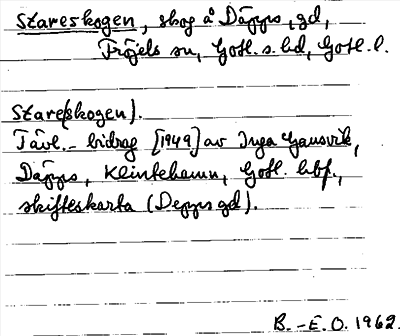 Stareskogen, skog å Däpps, gd,
Fröjels sn, Gotl. s. hd, Gotl. l.
Stare(skogen).
Tävl.- bidrag [1949] av Inga Gausvik,
Däpps, Klintehamn, Gotl. hbf.,
skifteskarta (Depps gd).
B.-E.O. 1962.